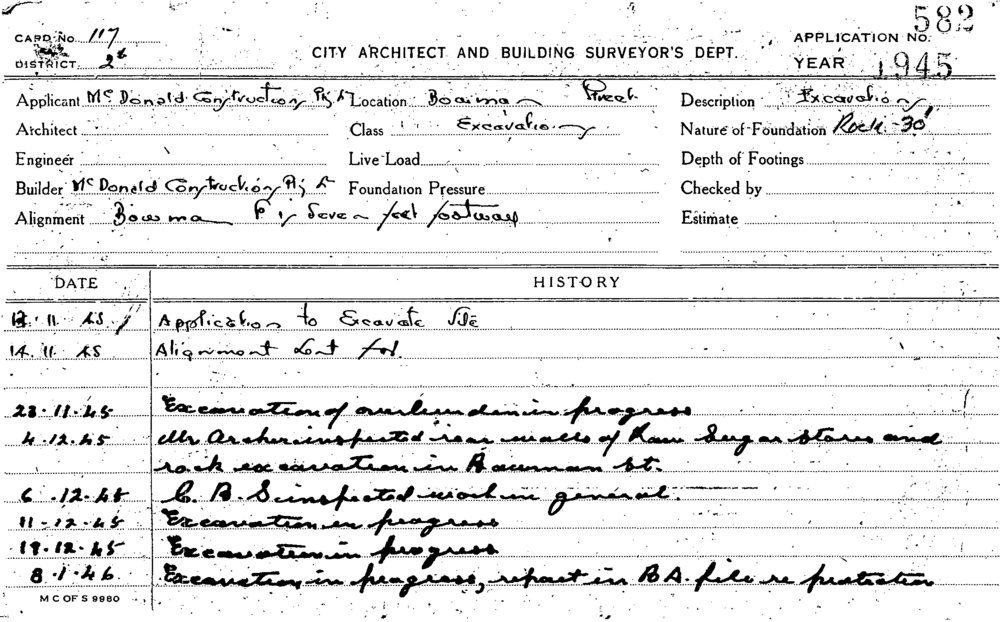 582
CARD No. 117
APPLICATION No.
DISTRICT. 2d
CITY ARCHITECT AND BUILDING SURVEYOR'S DEPT.
YEAR 1945
Applicant Mc Donald Construction Pty Location Bowman Street Description Excavation
Architect Class Excavation Nature of Foundation Rock - 30'
Engineer Live Load Depth of Footings
Builder Mc Donald Construction Pty Foundation Pressure Checked by
Alignment Bowman seven feet footway Estimate
DATE HISTORY
11 45 Application to Excavate Site
14 11 45 Alignment for
23.11.45 Excavation of overburden in progress
4.12.45 Mr Archer inspected rear walls of Raw Sugar Stores and
rock excavation in Bowman St.
6.12.45 C. B. S inspected work in general.
11-12-45 Excavation in progress
19.12.45 Excavation in progress
8.1.46 Excavation in progress, report in B A. file re protection
M C OF S 9960